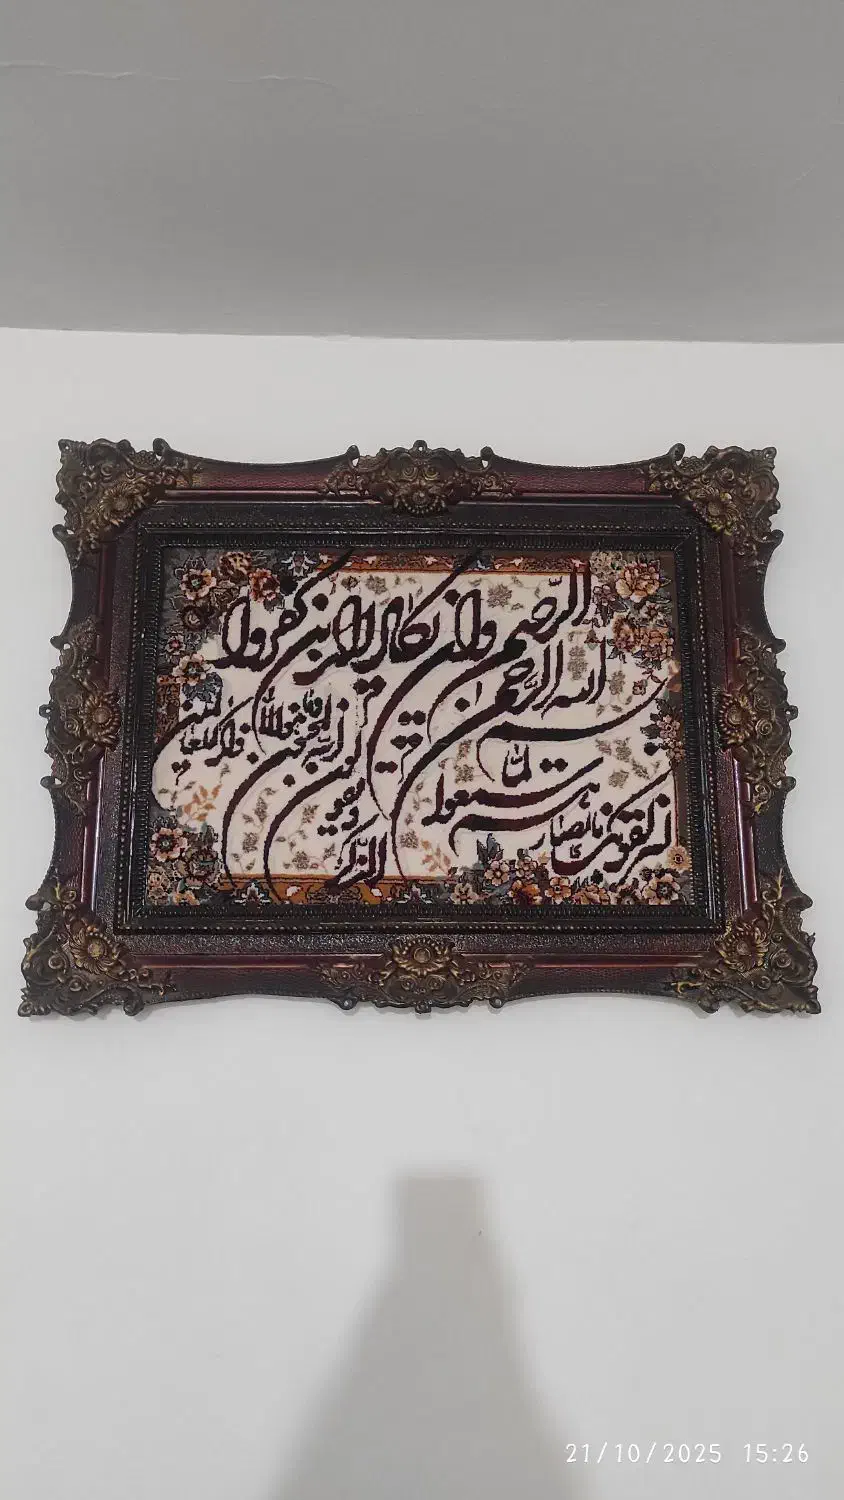 بسم الله الرحمن الرحيم
وان يكاد الذين كفروا
ليزلقونك بابصارهم لما سمعوا
الذكر ويقولون
انه لمجنون وما هو الا
ذكر للعالمين
21/10/2025 15:26